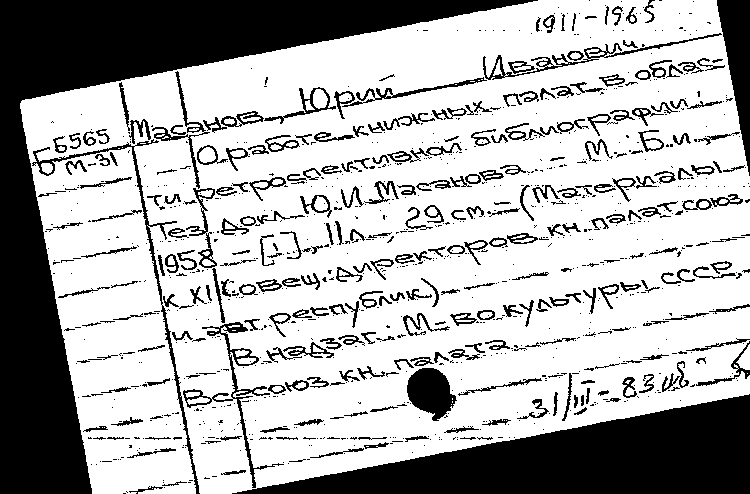 1911-1965
Масанов, Юрий Иванович.
Б5565
М-31
О работе книжных палат в облас-
ти ретроспективной библиографии:
Тез. докл. Ю.И. Масанова. - М.: Б.и.,
1958. - [1], 11 л.; 29 см. - (Материалы
к XI совещ. директоров кн. палат союз.
и авт. республик)
В надзаг.: М-во культуры СССР,
Всесоюз. кн. палата.
31/III-83